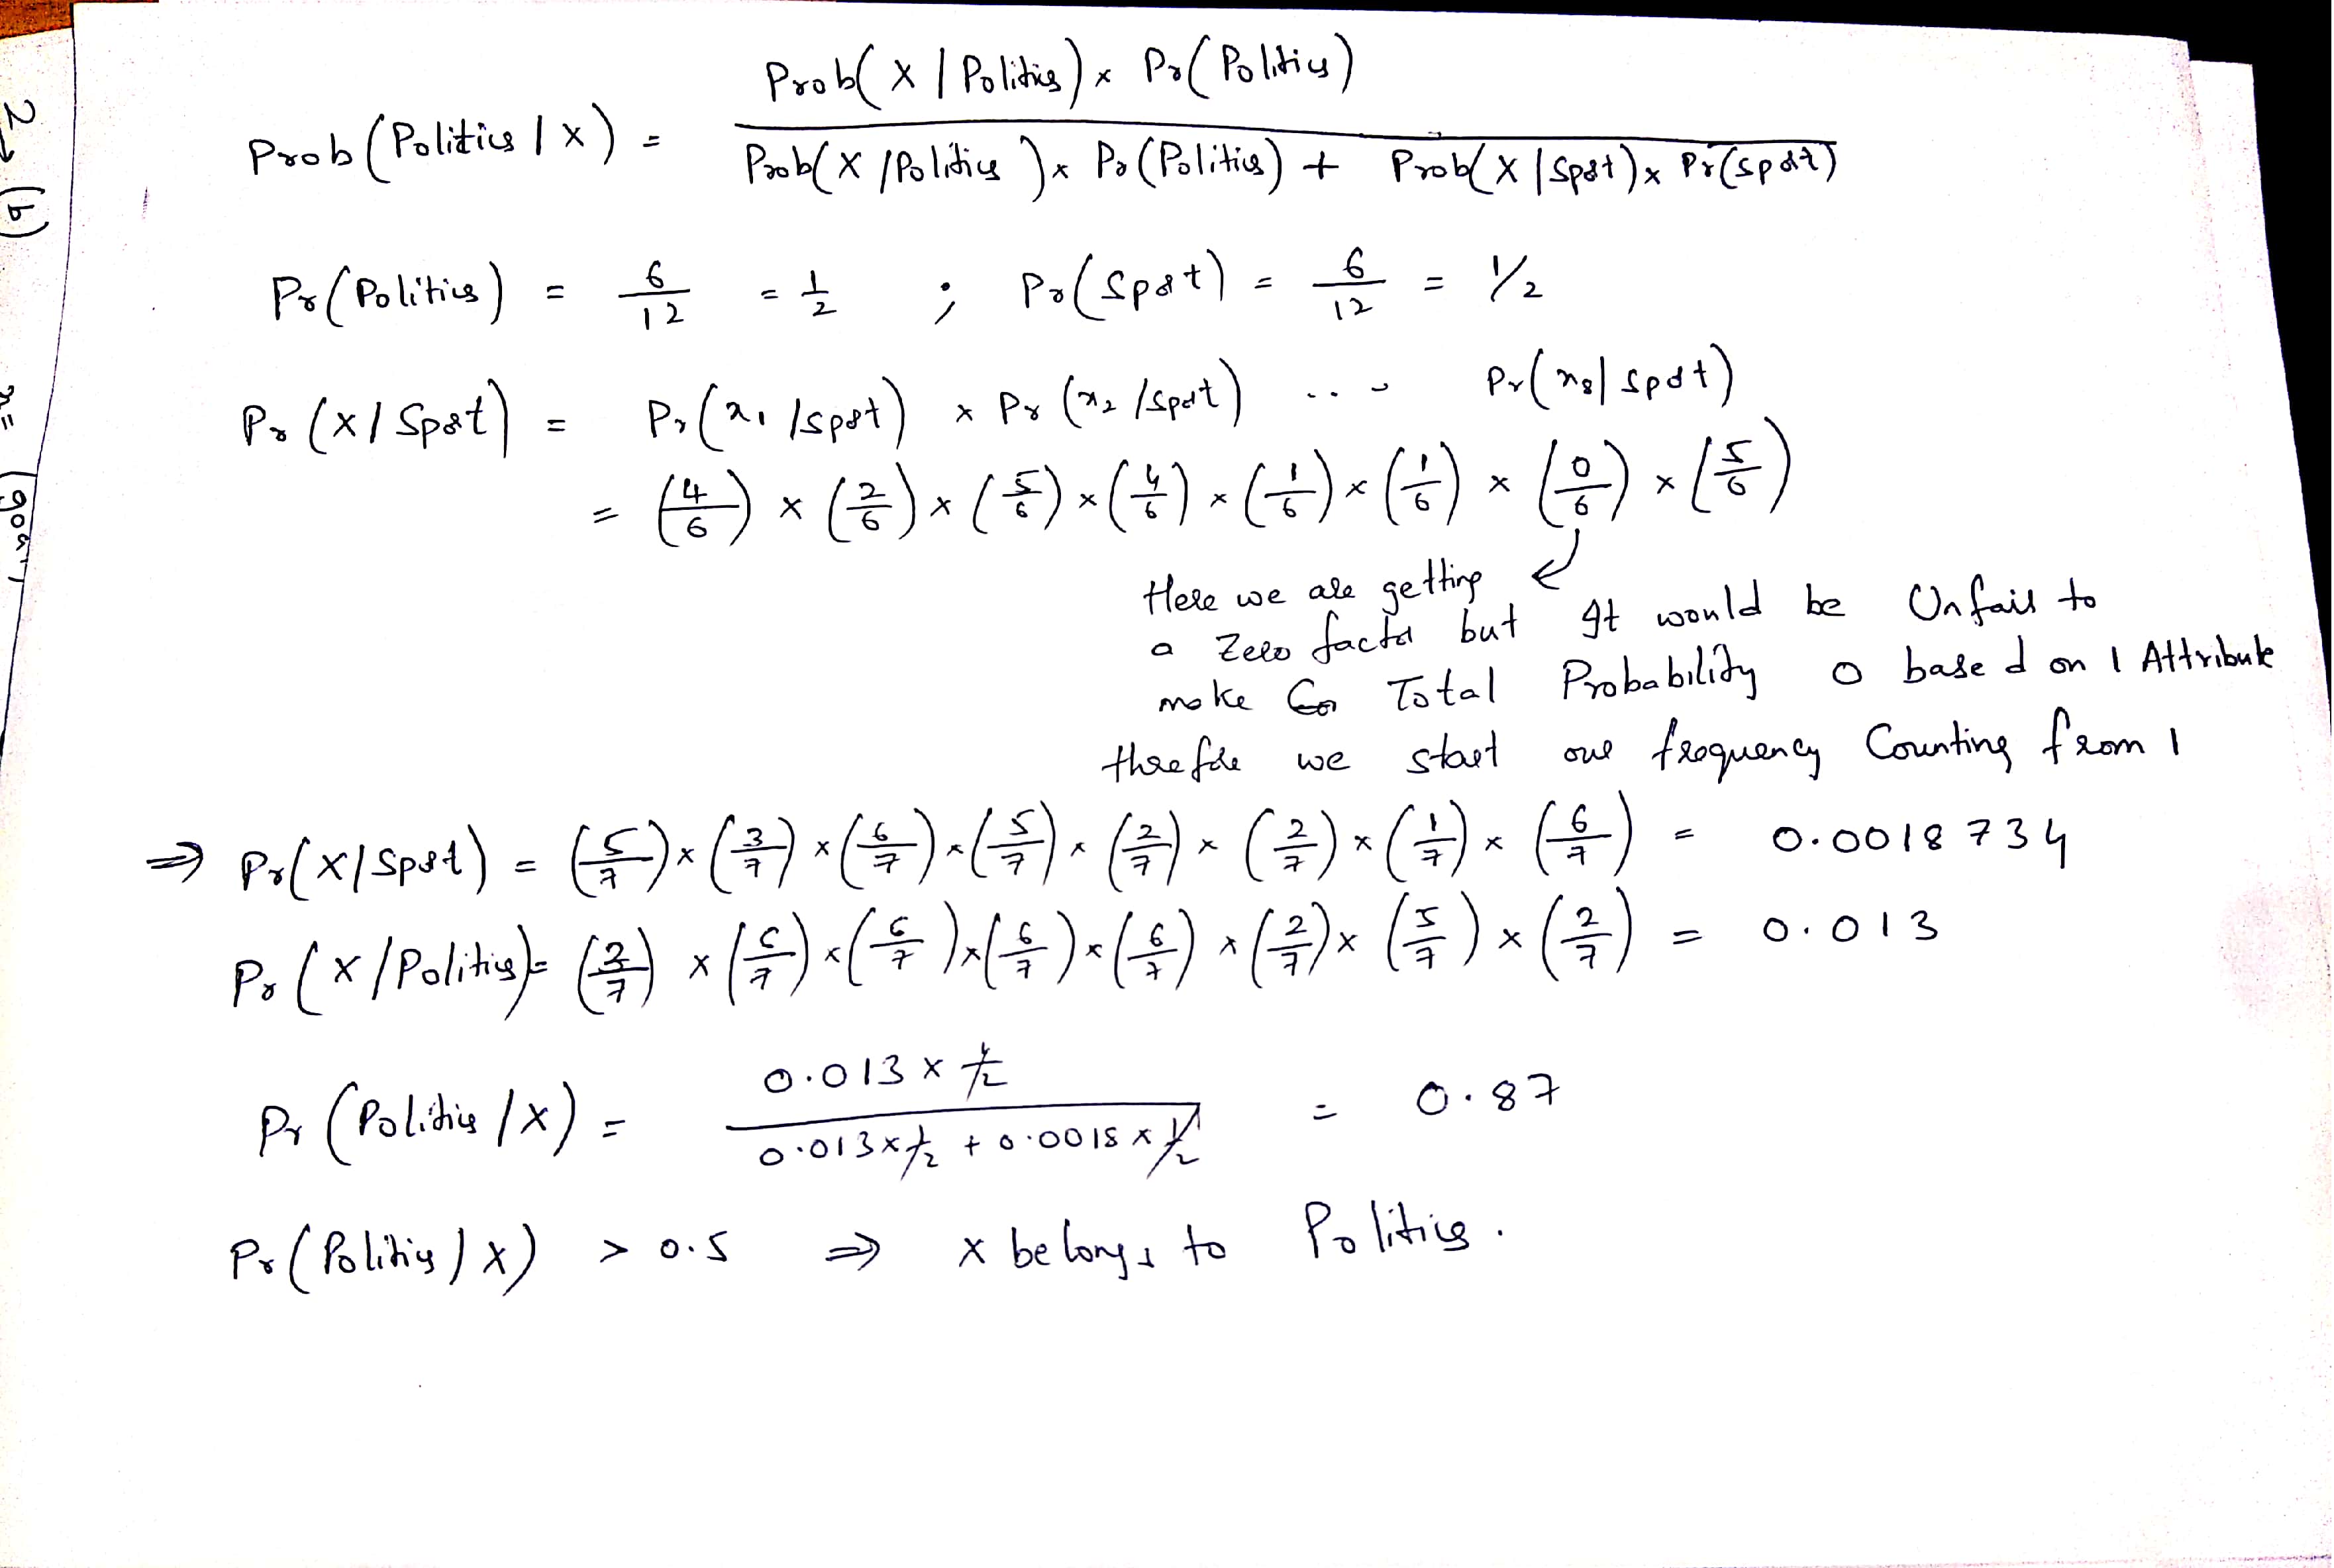 Prob(Politics | X) = Prob(X | Politics) x Pr(Politics) / Prob(X | Politics) x Pr(Politics) + Prob(X | Sport) x Pr(Sport)
2 (b)
Pr(Politics) = 6/12 = 1/2 ; Pr(Sport) = 6/12 = 1/2
Pr(X | Sport) = Pr(x1 | Sport) x Pr(x2 | Sport) .... Pr(x8 | Sport)
= (4/6) x (2/6) x (5/6) x (4/6) x (1/6) x (1/6) x (0/6) x (5/6)
Here we are getting
a Zero factor but It would be Unfair to
make Total Probability 0 based on 1 Attribute
threfore we start our frequency Counting from 1
⇒ Pr(X | Sport) = (5/7) x (3/7) x (6/7) x (5/7) x (2/7) x (2/7) x (1/7) x (6/7) = 0.0018734
Pr(X | Politics) = (/7) x (/7) x (6/7) x (6/7) x (6/7) x (2/7) x (5/7) x (2/7) = 0.013
Pr(Politics | X) = 0.013 x 1/2 / 0.013 x 1/2 + 0.0018 x 1/2 = 0.87
Pr(Politics | X) > 0.5 ⇒ X belongs to Politics.